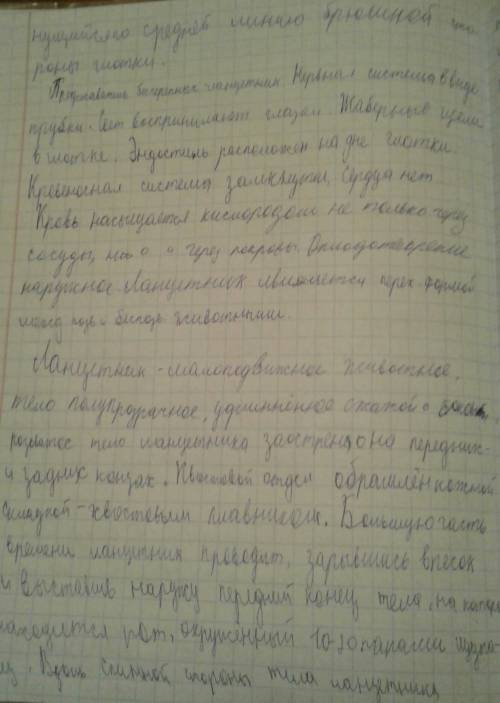 нущийся по средней линию брюшной сто
роны глотки.
Представитель бесчерепных - ланцетник. Нервная система в виде
трубки. Свет воспринимают глазки. Жаберные щели
в глотке. Эндостиль расположен на дне глотки.
Кровеносная система замкнутая, сердца нет.
Кровь насыщается кислородом не только через
сосуды, но и через покровы. Оплодотворение
наружное. Ланцетник является перех. формой
между позв и беспозв животными.
Ланцетник - малоподвижное животное,
тело полупрозрачное, удлинённое сжатой с боков,
тело ланцетника заострено на передних
и задних концах. Хвостовой отдел обрамлён кожной
складкой - хвостовым плавником. Большую часть
времени ланцетник проводит, зарывшись в песок
и выставив наружу передний конец тела, на котором
находится рот, окружённый 10-20 парами щупа-
лец. Вдоль спинной стороны тела ланцетника